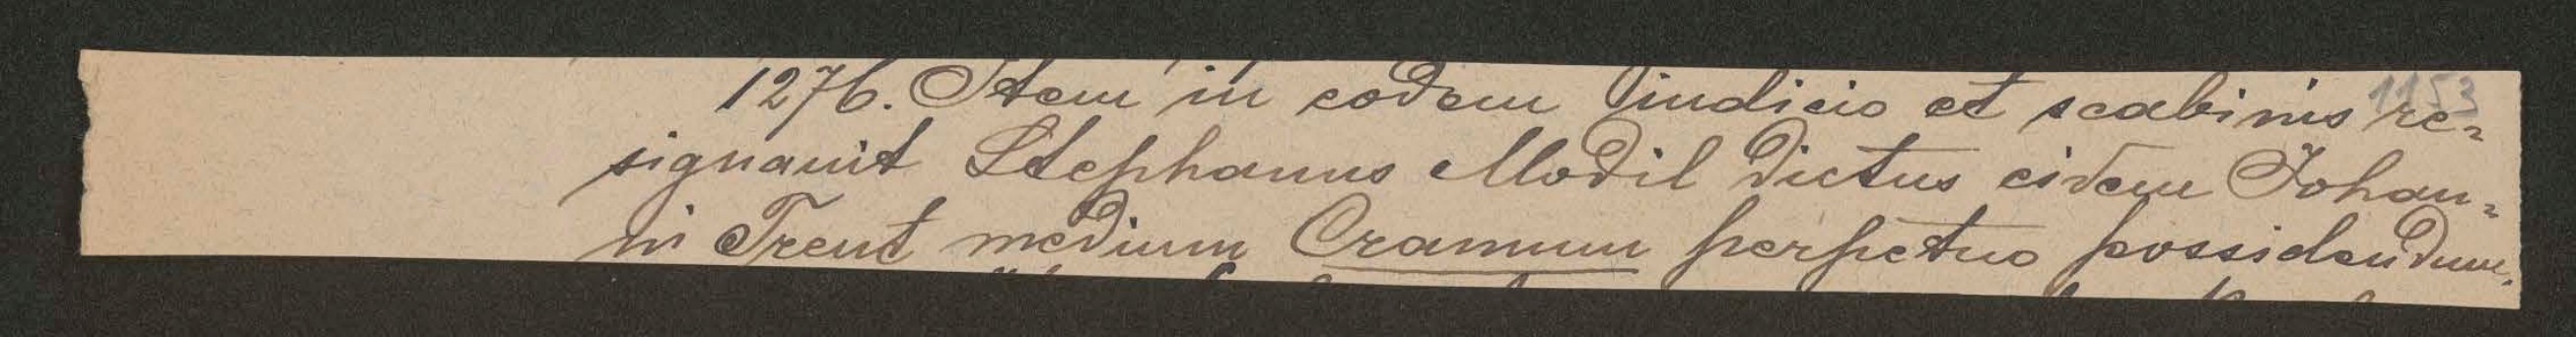 1276. Item in eodem iudicio et scabinis re-
1153
signauit Stephanus Modil dictus eidem Johan-
ni Trent medium Cramum perpetuo possidendum.